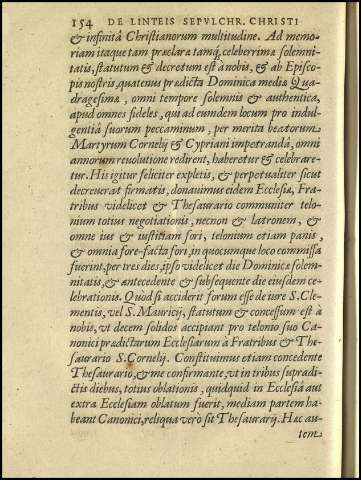 154 DE LINTEIS SEPVLCHR. CHRISTI
& infinitâ Christianorum multitudine. Ad memo-
riam itaque tam præclaræ tamq́; celeberrimæ solemni-
tatis, statutum & decretum est à nobis, & ab Episco-
pis nostris, quatenus prædicta Dominica mediæ Qua-
dragesimæ, omni tempore solemnis & authentica,
apud omnes fideles, qui ad eumdem locum pro indul-
gentiâ suorum peccaminum, per merita beatorum
Martyrum Cornelij & Cypriani impetrandâ, omni
annorum reuolutione redirent, haberetur & celebrare-
tur. His igitur feliciter expletis, & perpetualiter sicut
decreuerāt firmatis, donauimus eidem Ecclesiæ, Fra-
tribus videlicet & Thesaurario communiter telo-
nium totius negotiationis, necnon & latronem, &
omne ius & iustitiam fori, telonium etiam panis,
& omnia fore-facta fori, in quocunque loco commissa
fuerint, per tres dies, ipso videlicet die Dominicæ solem-
nitatis, & antecedente & subsequente die eiusdem ce-
lebrationis. Quòd si acciderit forum esse de iure S. Cle-
mentis, vel S. Mauricij, statutum & concessum est à
nobis, vt decem solidos accipiant pro telonio suo Ca-
nonici prædictarum Ecclesiarum à Fratribus & The-
saurario S. Cornelij. Constituimus etiam concedente
Thesaurario, & me confirmante, vt in tribus supradi-
ctis diebus, totius oblationis, quidquid in Ecclesiâ aut
extra Ecclesiam oblatum fuerit, mediam partem ha-
beant Canonici, reliqua verò sit Thesaurarij. Hæc au-
tem